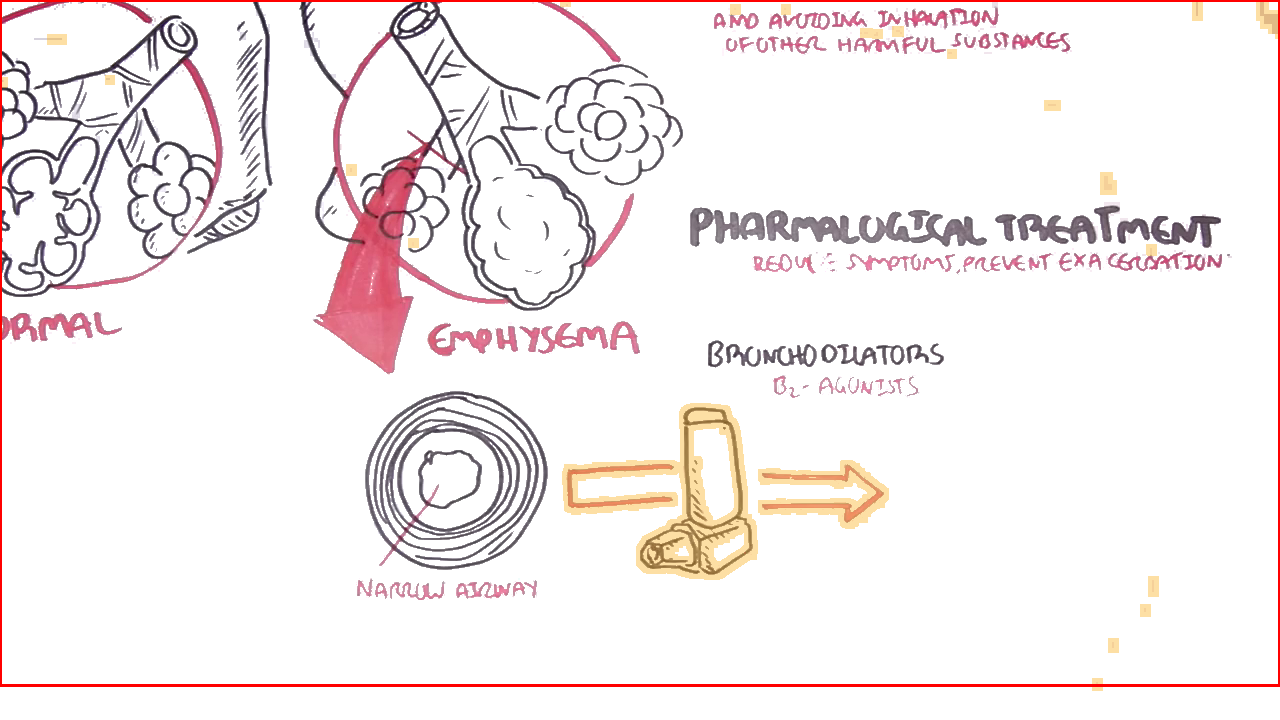 AND AVOIDING INHALATION
OF OTHER HARMFUL SUBSTANCES
PHARMALOGICAL TREATMENT
REDUCE SYMPTOMS, PREVENT EXACERBATION
ORMAL
EMPHYSEMA
BRONCHODILATORS
B2- AGONISTS
NARROW AIRWAY